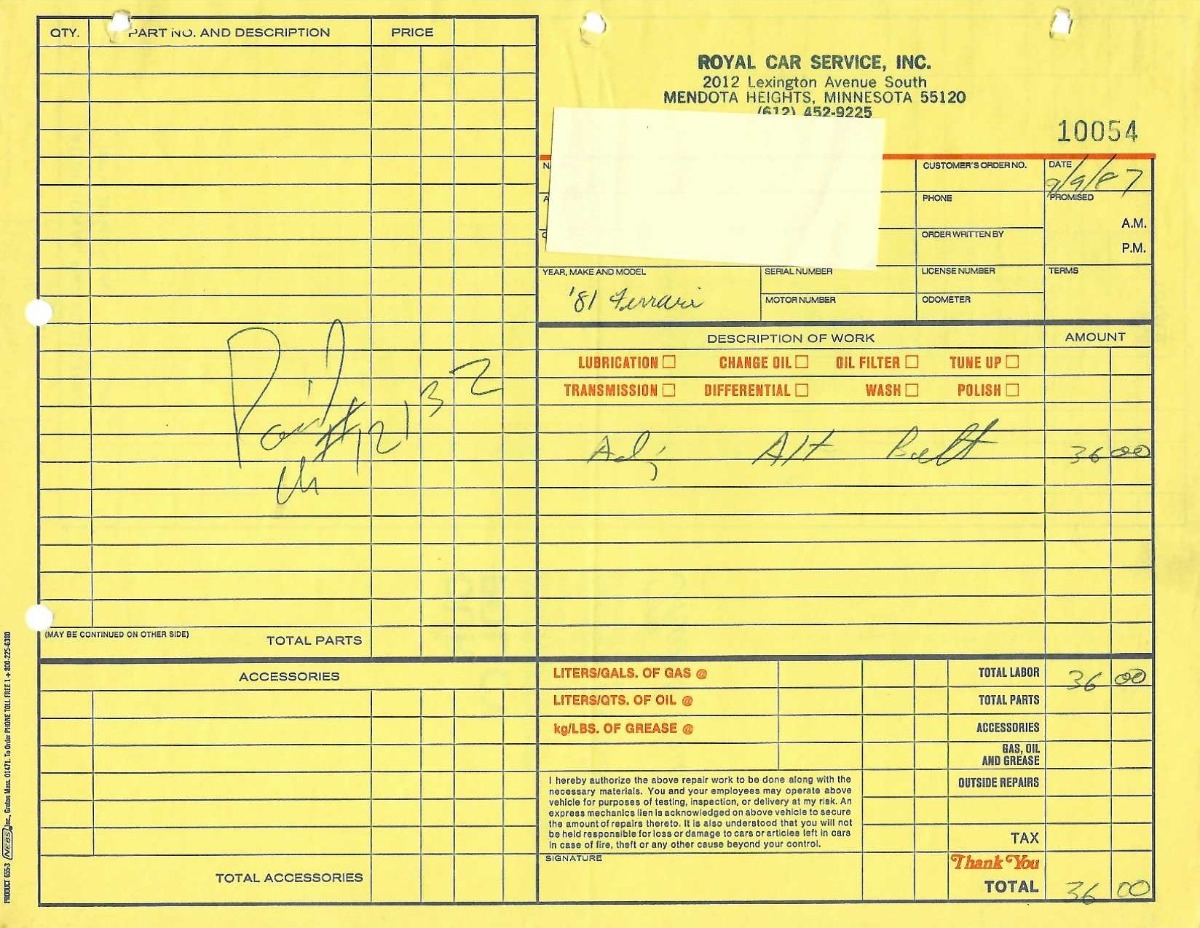 QTY. PART NO. AND DESCRIPTION PRICE
ROYAL CAR SERVICE, INC.
2012 Lexington Avenue South
MENDOTA HEIGHTS, MINNESOTA 55120
(612) 452-9225
10054
CUSTOMER'S ORDER NO. DATE
9/9/87
PHONE PROMISED
A.M.
ORDER WRITTEN BY
P.M.
YEAR, MAKE AND MODEL SERIAL NUMBER LICENSE NUMBER TERMS
'81 Ferrari
MOTOR NUMBER ODOMETER
DESCRIPTION OF WORK AMOUNT
LUBRICATION CHANGE OIL OIL FILTER TUNE UP
TRANSMISSION DIFFERENTIAL WASH POLISH
Paid
#12132
Adj Alt Belt 36 00
(MAY BE CONTINUED ON OTHER SIDE) TOTAL PARTS
ACCESSORIES
TOTAL ACCESSORIES
LITERS/GALS. OF GAS @ TOTAL LABOR 36 00
LITERS/QTS. OF OIL @ TOTAL PARTS
kg/LBS. OF GREASE @ ACCESSORIES
GAS, OIL
AND GREASE
OUTSIDE REPAIRS
I hereby authorize the above repair work to be done along with the
necessary materials. You and your employees may operate above
vehicle for purposes of testing, inspection, or delivery at my risk. An
express mechanics lien is acknowledged on above vehicle to secure
the amount of repairs thereto. It is also understood that you will not
be held responsible for loss or damage to cars or articles left in cars
in case of fire, theft or any other cause beyond your control.
TAX
SIGNATURE
Thank You
TOTAL 36 00
PRODUCT 655-3 NEBS Inc., Groton Mass. 01471. To Order PHONE TOLL FREE 1 + 800-225-6380